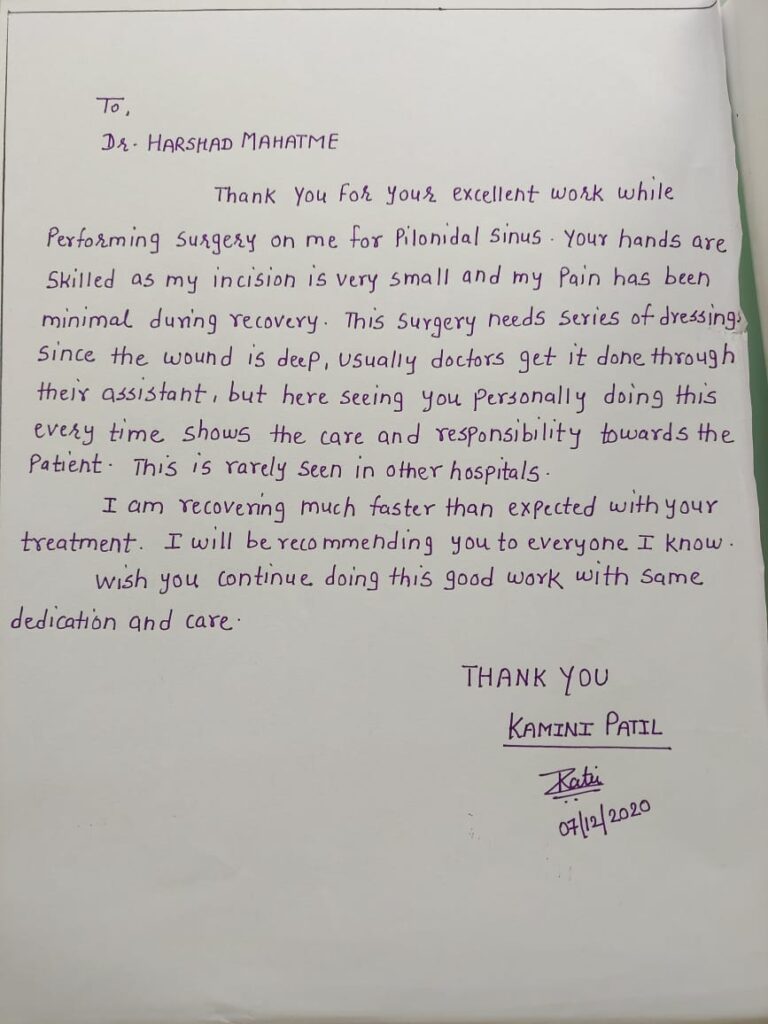 To,
Dr. HARSHAD MAHATME
Thank you for your excellent work while
Performing surgery on me for Pilonidal sinus. Your hands are
skilled as my incision is very small and my Pain has been
minimal during recovery. This surgery needs series of dressings
since the wound is deep, usually doctors get it done through
their assistant, but here seeing you personally doing this
every time shows the care and responsibility towards the
Patient. This is rarely seen in other hospitals.
I am recovering much faster than expected with your
treatment. I will be recommending you to everyone I know.
Wish you continue doing this good work with same
dedication and care.
THANK YOU
KAMINI PATIL
07/12/2020